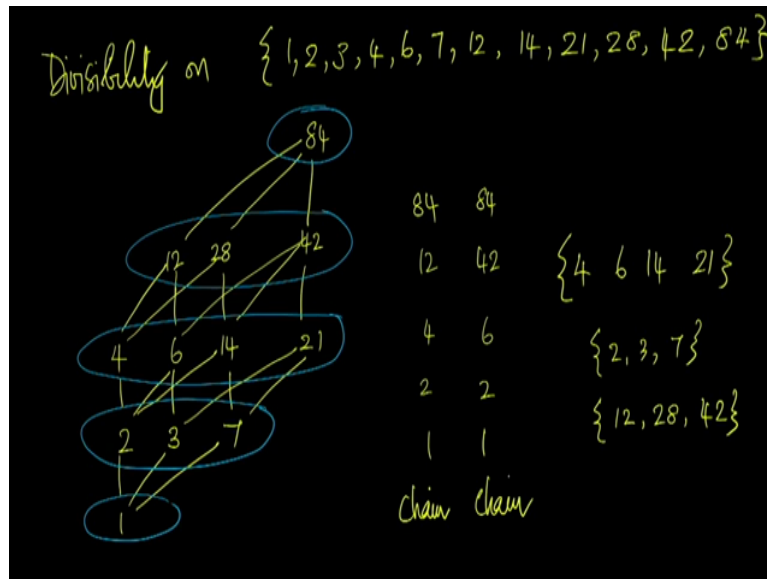 Divisibility on {1, 2, 3, 4, 6, 7, 12, 14, 21, 28, 42, 84}
84
12 28 42
4 6 14 21
2 3 7
1
84 84
12 42
4 6
2 2
1 1
chain chain
{4 6 14 21}
{2, 3, 7}
{12, 28, 42}